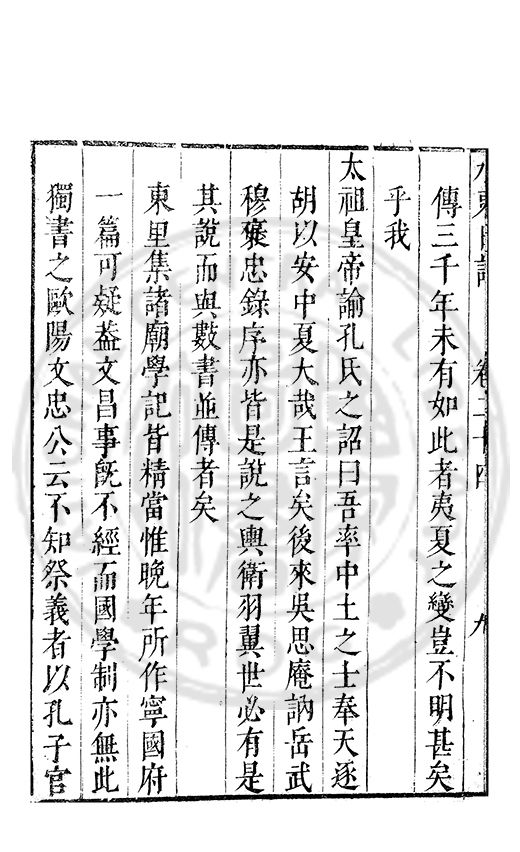 水東日記 卷二十四 九
傳三千年未有如此者夷夏之變豈不明甚矣
乎我
太祖皇帝諭孔氏之詔曰吾率中土之士奉天逐
胡以安中夏大哉王言矣後來吳思庵訥岳武
穆襃忠錄序亦皆是說之輿衛羽翼世必有是
其說而與數書並傳者矣
東里集諸廟學記皆精當惟晚年所作寧國府
一篇可疑葢文昌事旣不經而國學制亦無此
獨書之歐陽文忠公云不知祭義者以孔子官